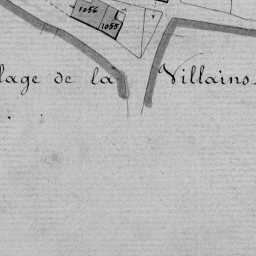 1056
1055
lage de la Villains